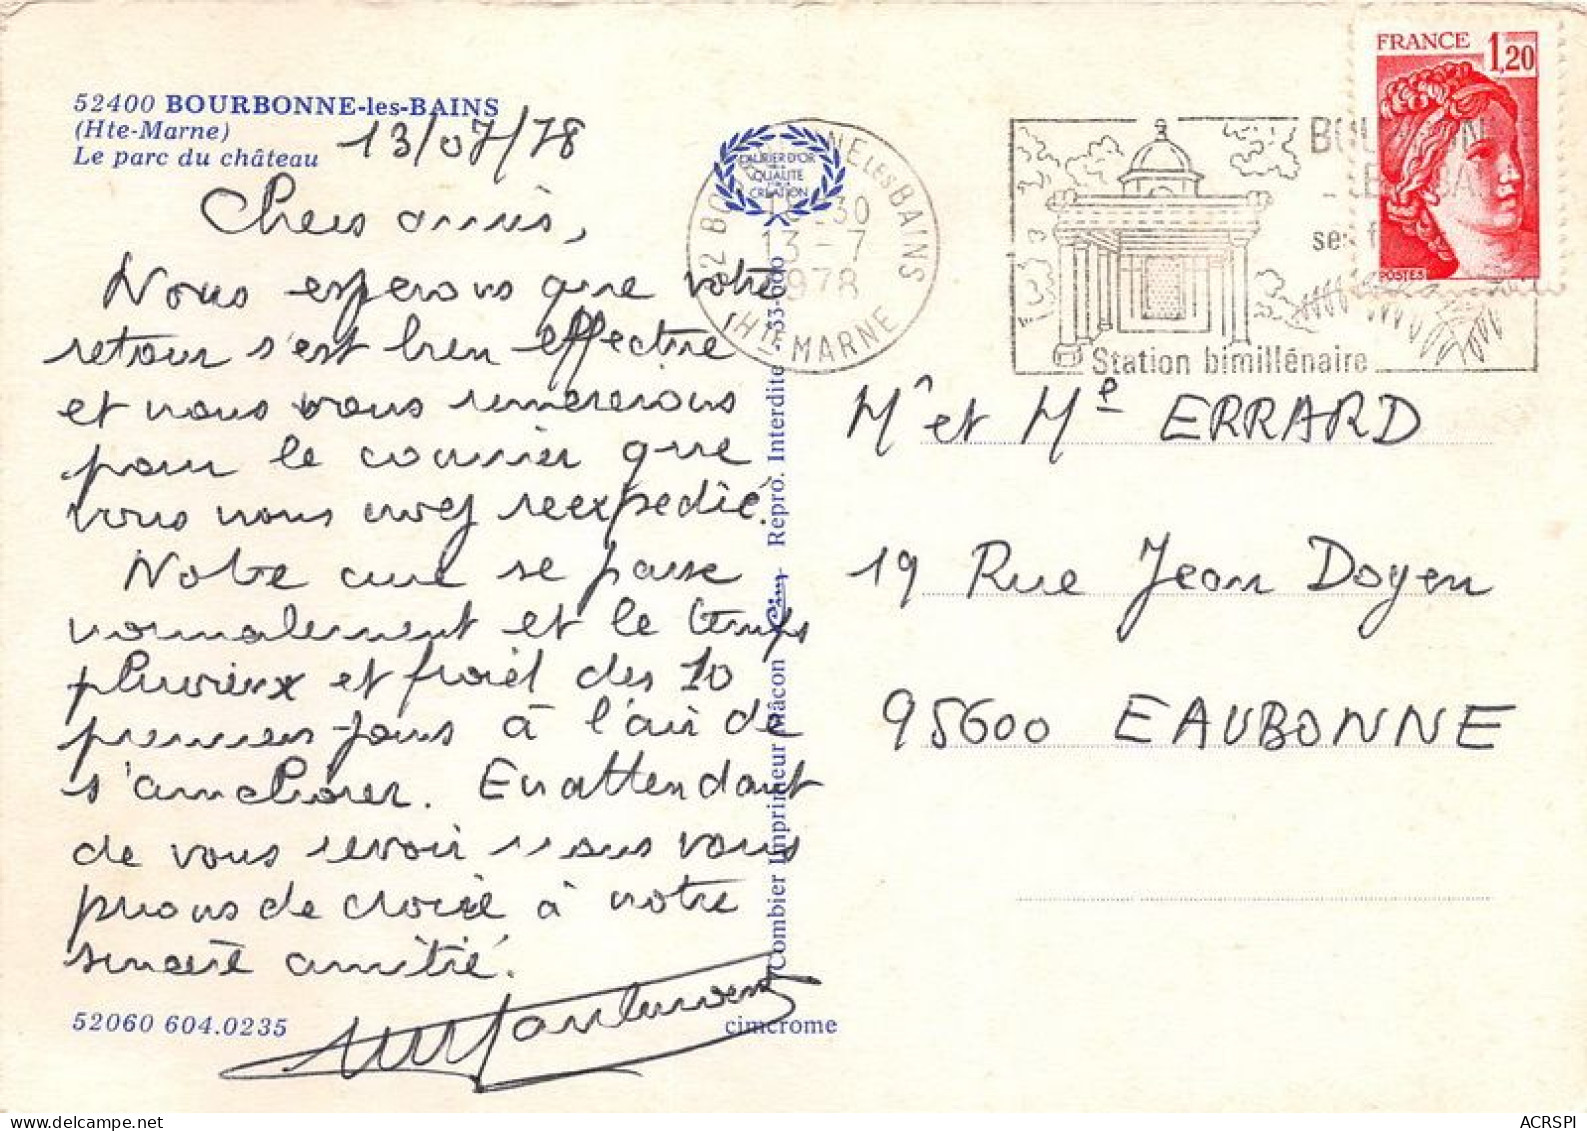 52400 BOURBONNE-les-BAINS
(Hte-Marne)
Le parc du château
13/07/78
Chers amis,
Nous esperons que votre
retour s'est bien effectué
et nous vous remercions
pour le courrier que
vous nous avez reexpedié.
Notre cure se passe
normalement et le temps
pluvieux et froid des 10
premiers jours à l'air de
s'ameliorer. En attendant
de vous revoir nous vous
prions de croire à notre
sincère amitié.
52060 604.0235
cimcrome
Combier Imprimeur Mâcon
Repro. Interdite 33-600
LAURIER D'OR
QUALITÉ
CREATION
52 BOURBONNE LES BAINS
HTE MARNE
30
13-7
1978
Station bimillénaire
FRANCE 1,20
POSTES
Mr et Me ERRARD
19 Rue Jean Doyen
95600 EAUBONNE
ACRSPI